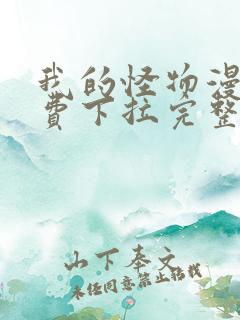 我的怪物漫
费下拉完整
山下奉文
未经同意禁止转载